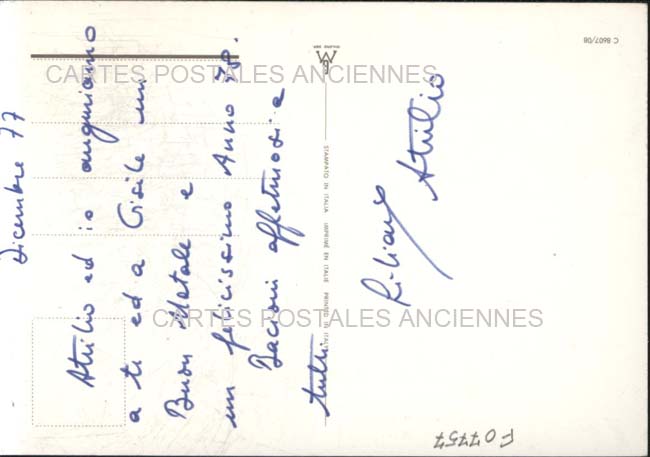 Dicembre 77
Attilio ed io auguriamo
a te ed a Cicile un
Buon Natale e
un felicissimo Anno 78.
Bacioni affettuosi a
tutti
Liliana
Attilio
CARTES POSTALES ANCIENNES
CARTES POSTALES ANCIENNES
STAMPATO IN ITALIA IMPRIMÉ EN ITALIE PRINTED IN ITALY
C 8607/08
F07757